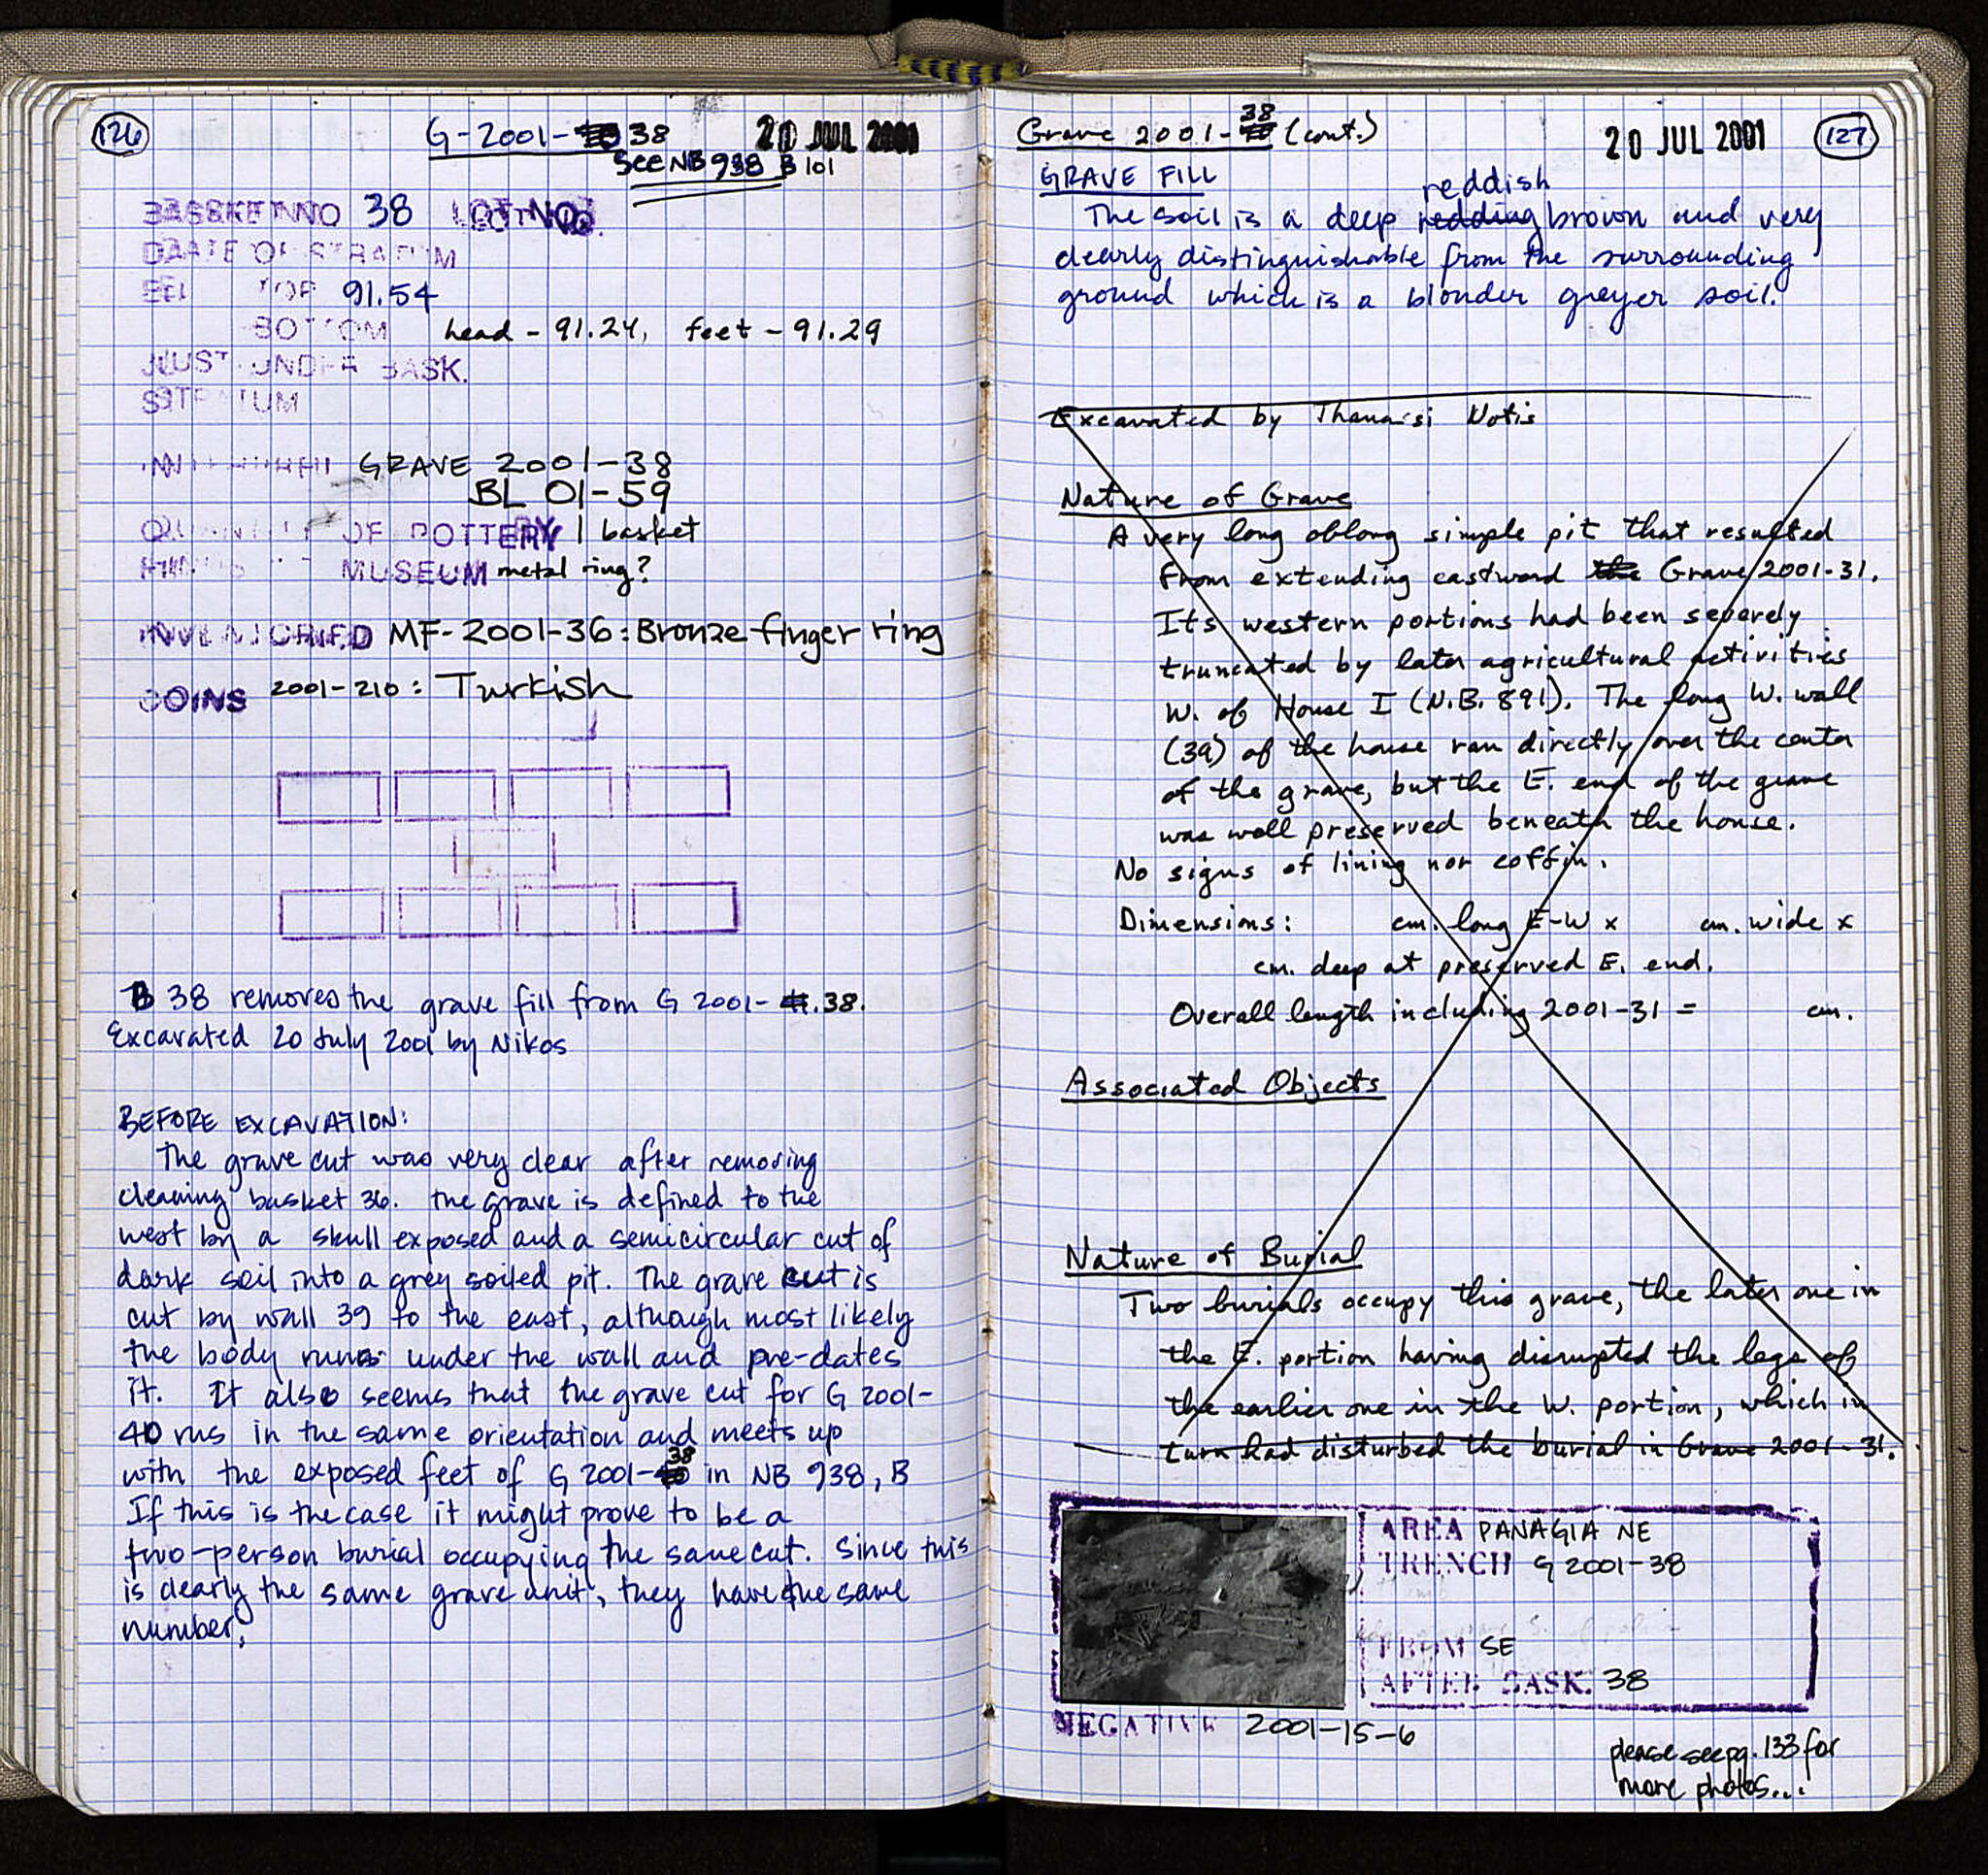 126
G-2001-38
20 JUL 2001
SEE NB 938 B 101
BASKET NO 38 LOT NO.
DATE OF STRATUM
EL. TOP 91.54
BOTTOM head - 91.24, feet - 91.29
JUST UNDER BASK.
STRATUM
GRAVE 2001-38
BL 01-59
QUANTITY OF POTTERY 1 basket
MUSEUM metal ring?
INVENTORIED MF-2001-36: Bronze finger ring
COINS 2001-210: Turkish
B 38 removes the grave fill from G 2001-38.
Excavated 20 July 2001 by Nikos
BEFORE EXCAVATION:
The grave cut was very clear after removing
cleaning basket 36. The grave is defined to the
west by a skull exposed and a semicircular cut of
dark soil into a grey soiled pit. The grave cut is
cut by wall 39 to the east, although most likely
the body runs under the wall and pre-dates
it. It also seems that the grave cut for G 2001-
40 rns in the same orientation and meets up
with the exposed feet of G 2001-38 in NB 938, B
If this is the case it might prove to be a
two-person burial occupying the same cut. Since this
is clearly the same grave unit, they have the same
number.
Grave 2001-38 (cont.)
20 JUL 2001
127
GRAVE FILL
reddish
The soil is a deep redding brown and very
clearly distinguishable from the surrounding
ground which is a blonder greyer soil.
Excavated by Thanasi Notis
Nature of Grave
A very long oblong simple pit that resulted
from extending eastward the Grave 2001-31.
Its western portions had been severely
truncated by later agricultural activities
W. of House I (N.B. 891). The long W. wall
(39) of the house ran directly over the center
of the grave, but the E. end of the grave
was well preserved beneath the house.
No signs of lining nor coffin.
Dimensions: cm. long E-W x cm. wide x
cm. deep at preserved E. end.
Overall length including 2001-31 = cm.
Associated Objects
Nature of Burial
Two burials occupy this grave, the later one in
the E. portion having disrupted the legs of
the earlier one in the W. portion, which in
turn had disturbed the burial in Grave 2001-31.
AREA PANAGIA NE
TRENCH G 2001-38
FROM SE
AFTER BASK. 38
NEGATIVE 2001-15-6
please see pg. 133 for
more photos...